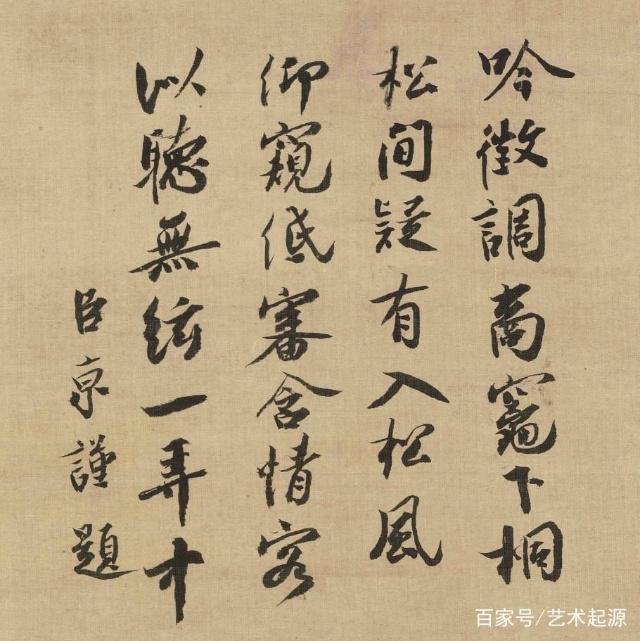 吟徵調商竈下桐
松間疑有入松風
仰窺低審含情客
以聽無絃一弄中
臣京謹題
百家号/艺术起源